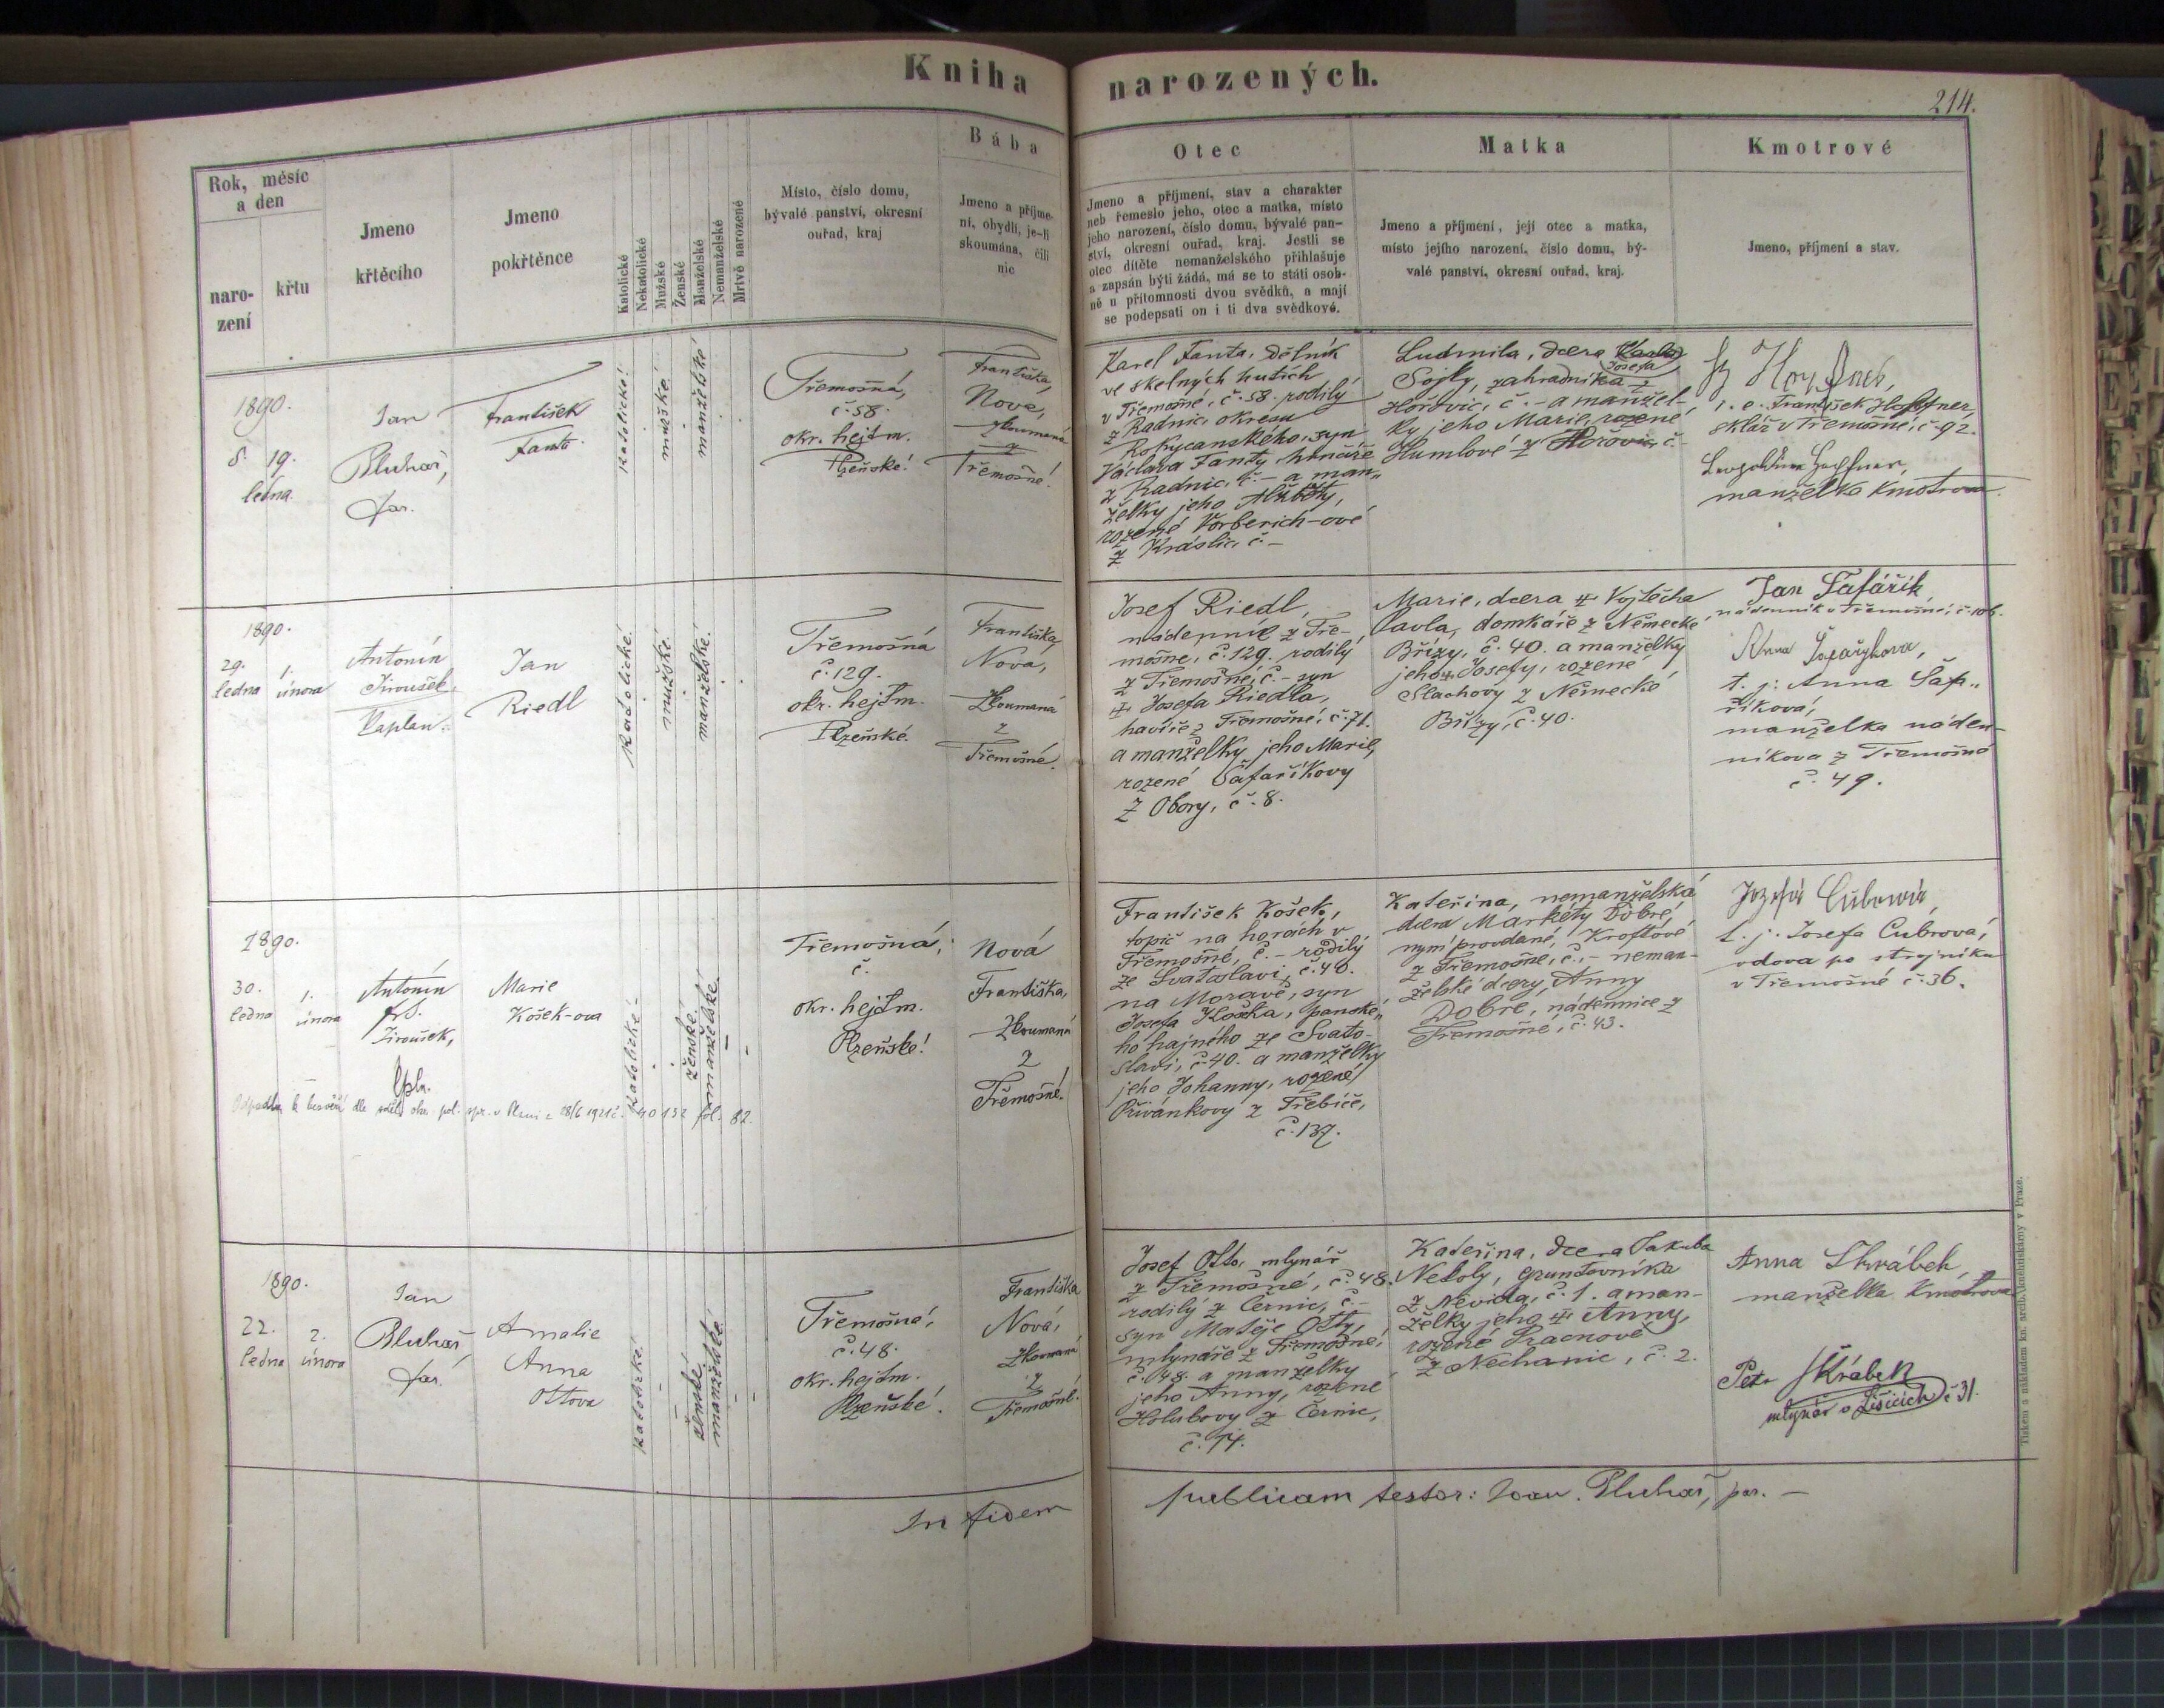 Kniha narozených.
214.
Rok, měsíc
a den
naro-
zení
křtu
Jmeno
křtěcího
Jmeno
pokřtěnce
Katolické
Nekatolické
Mužské
Ženské
Manželské
Nemanželské
Mrtvě narozené
Místo, číslo domu,
bývalé panství, okresní
ouřad, kraj
Bába
Jmeno a příjme-
ní, obydlí, je-li
skoumána, čili
nic
Otec
Jmeno a příjmení, stav a charakter
neb řemeslo jeho, otec a matka, místo
jeho narození, číslo domu, bývalé pan-
ství, okresní ouřad, kraj. Jestli se
otec dítěte nemanželského přihlašuje
a zapsán býti žádá, má se to státi osob-
ně u přítomnosti dvou svědků, a mají
se podepsati on i ti dva svědkové.
Matka
Jmeno a příjmení, její otec a matka,
místo jejího narození, číslo domu, bý-
valé panství, okresní ouřad, kraj.
Kmotrové
Jmeno, příjmení a stav.
1890.
8. 19.
ledna.
Jan
Bluhař,
far.
František
Fanta.
katolické!
mužské
manželské
Třemošná,
č. 58.
okr. hejtm.
Plzeňské!
Františka,
Nová,
zkoumaná
z
Třemošné!
Karel Fanta, dělník
ve skelných hutích
v Třemošné, č. 58. rodilý
z Radnic, okresu
Rokycanského, syn
Václava Fanty, hrnčíře
z Radnic, č. – a man„
želky jeho Alžběty,
rozené Vorberich-ové
z Kraslic, č. –
Ludmila, dcera Karla
Josefa
Sojky, zahradníka z
Hořovic, č. – a manžel-
ky jeho Marie, rozené
Humlové z Hořovic, č. –
t. j. František Hoffner,
sklář v Třemošné, č. 92.
Leopoldine Hoffner,
manželka kmotrova.
1890.
29. 1.
ledna února
Antonín
Jiroušek,
kaplan.
Jan
Riedl
katolické!
mužské.
manželské!
Třemošná
č. 129.
okr. hejtm.
Plzeňské.
Františka,
Nová,
zkoumaná
z
Třemošné.
Josef Riedl,
nádenník z Tře-
mošné, č. 129. rodilý
z Třemošné, č. – syn
‡ Josefa Riedla,
havíře z Třemošné, č. 71.
a manželky jeho Marie,
rozené Šafaříkovy
z Obory, č. 8.
Marie, dcera ‡ Vojtěcha
Pavla, domkáře z Německé
Břízy, č. 40. a manželky
jeho ‡ Josefy, rozené
Slachovy z Německé
Břízy, č. 40.
Jan Šafářik,
nádenník v Třemošné, č. 106.
Anna
t. j. Anna Šafa„
říkova,
manželka náden-
níkova z Třemošné
č. 49.
1890.
30. 1.
ledna února
Antonín
Jiroušek,
kpln.
Marie
Košek-ova
katolické
ženské!
nemanželské
Odpadla k bezvěří dle sděl. okr. pol. spr. v Plzni z 28/6 1921 č. 40132 fol. 82.
Třemošná,
č.
okr. hejtm.
Plzeňské!
Nová
Františka,
zkoumaná
z
Třemošné!
František Košek,
topič na horách v
Třemošné, č. – rodilý
ze Svatoslavi, č. 40.
na Moravě, syn
Josefa Koška, panské„
ho hajného ze Svato-
slavi, č. 40. a manželky
jeho Johanny, rozené
z Třebíče,
č. 137.
Kateřina, nemanželská
dcera Markéty Dobré,
nyní provdané, Kroftové
z Třemošné, č. – neman-
želské dcery Anny
Dobré, nádennice z
Třemošné, č. 43.
t. j. Josefa Cubrová,
vdova po strojníku
v Třemošné č. 36.
1890.
22. 2.
ledna února
Jan
Bluhař,
far.
Amalie
Anna
Ottova
katolické!
ženské!
manželské
Třemošná,
č. 48.
okr. hejtm.
Plzeňské.
Františka
Nová,
zkoumaná
z
Třemošné.
Josef Otto, mlynář
z Třemošné, č. 48.
rodilý z Černic, č. –
syn Matěje Otty,
mlynáře z Třemošné,
č. 48. a manželky
jeho Anny, rozené
Holubovy z Černic,
č. 14.
Kateřina, dcera Jakuba
Nekoly, gruntovníka
z Nevida, č. 1. a man-
želky jeho ‡ Anny,
rozené
z Nechanic, č. 2.
Anna Skrábek,
manželka kmotrova
Petr Skrábek
mlynář v Líšicích č 31.
In fidem publicam testor: Joan. Bluhař, par. –
Tiskem a nákladem kn. arcib. knihtiskárny v Praze.